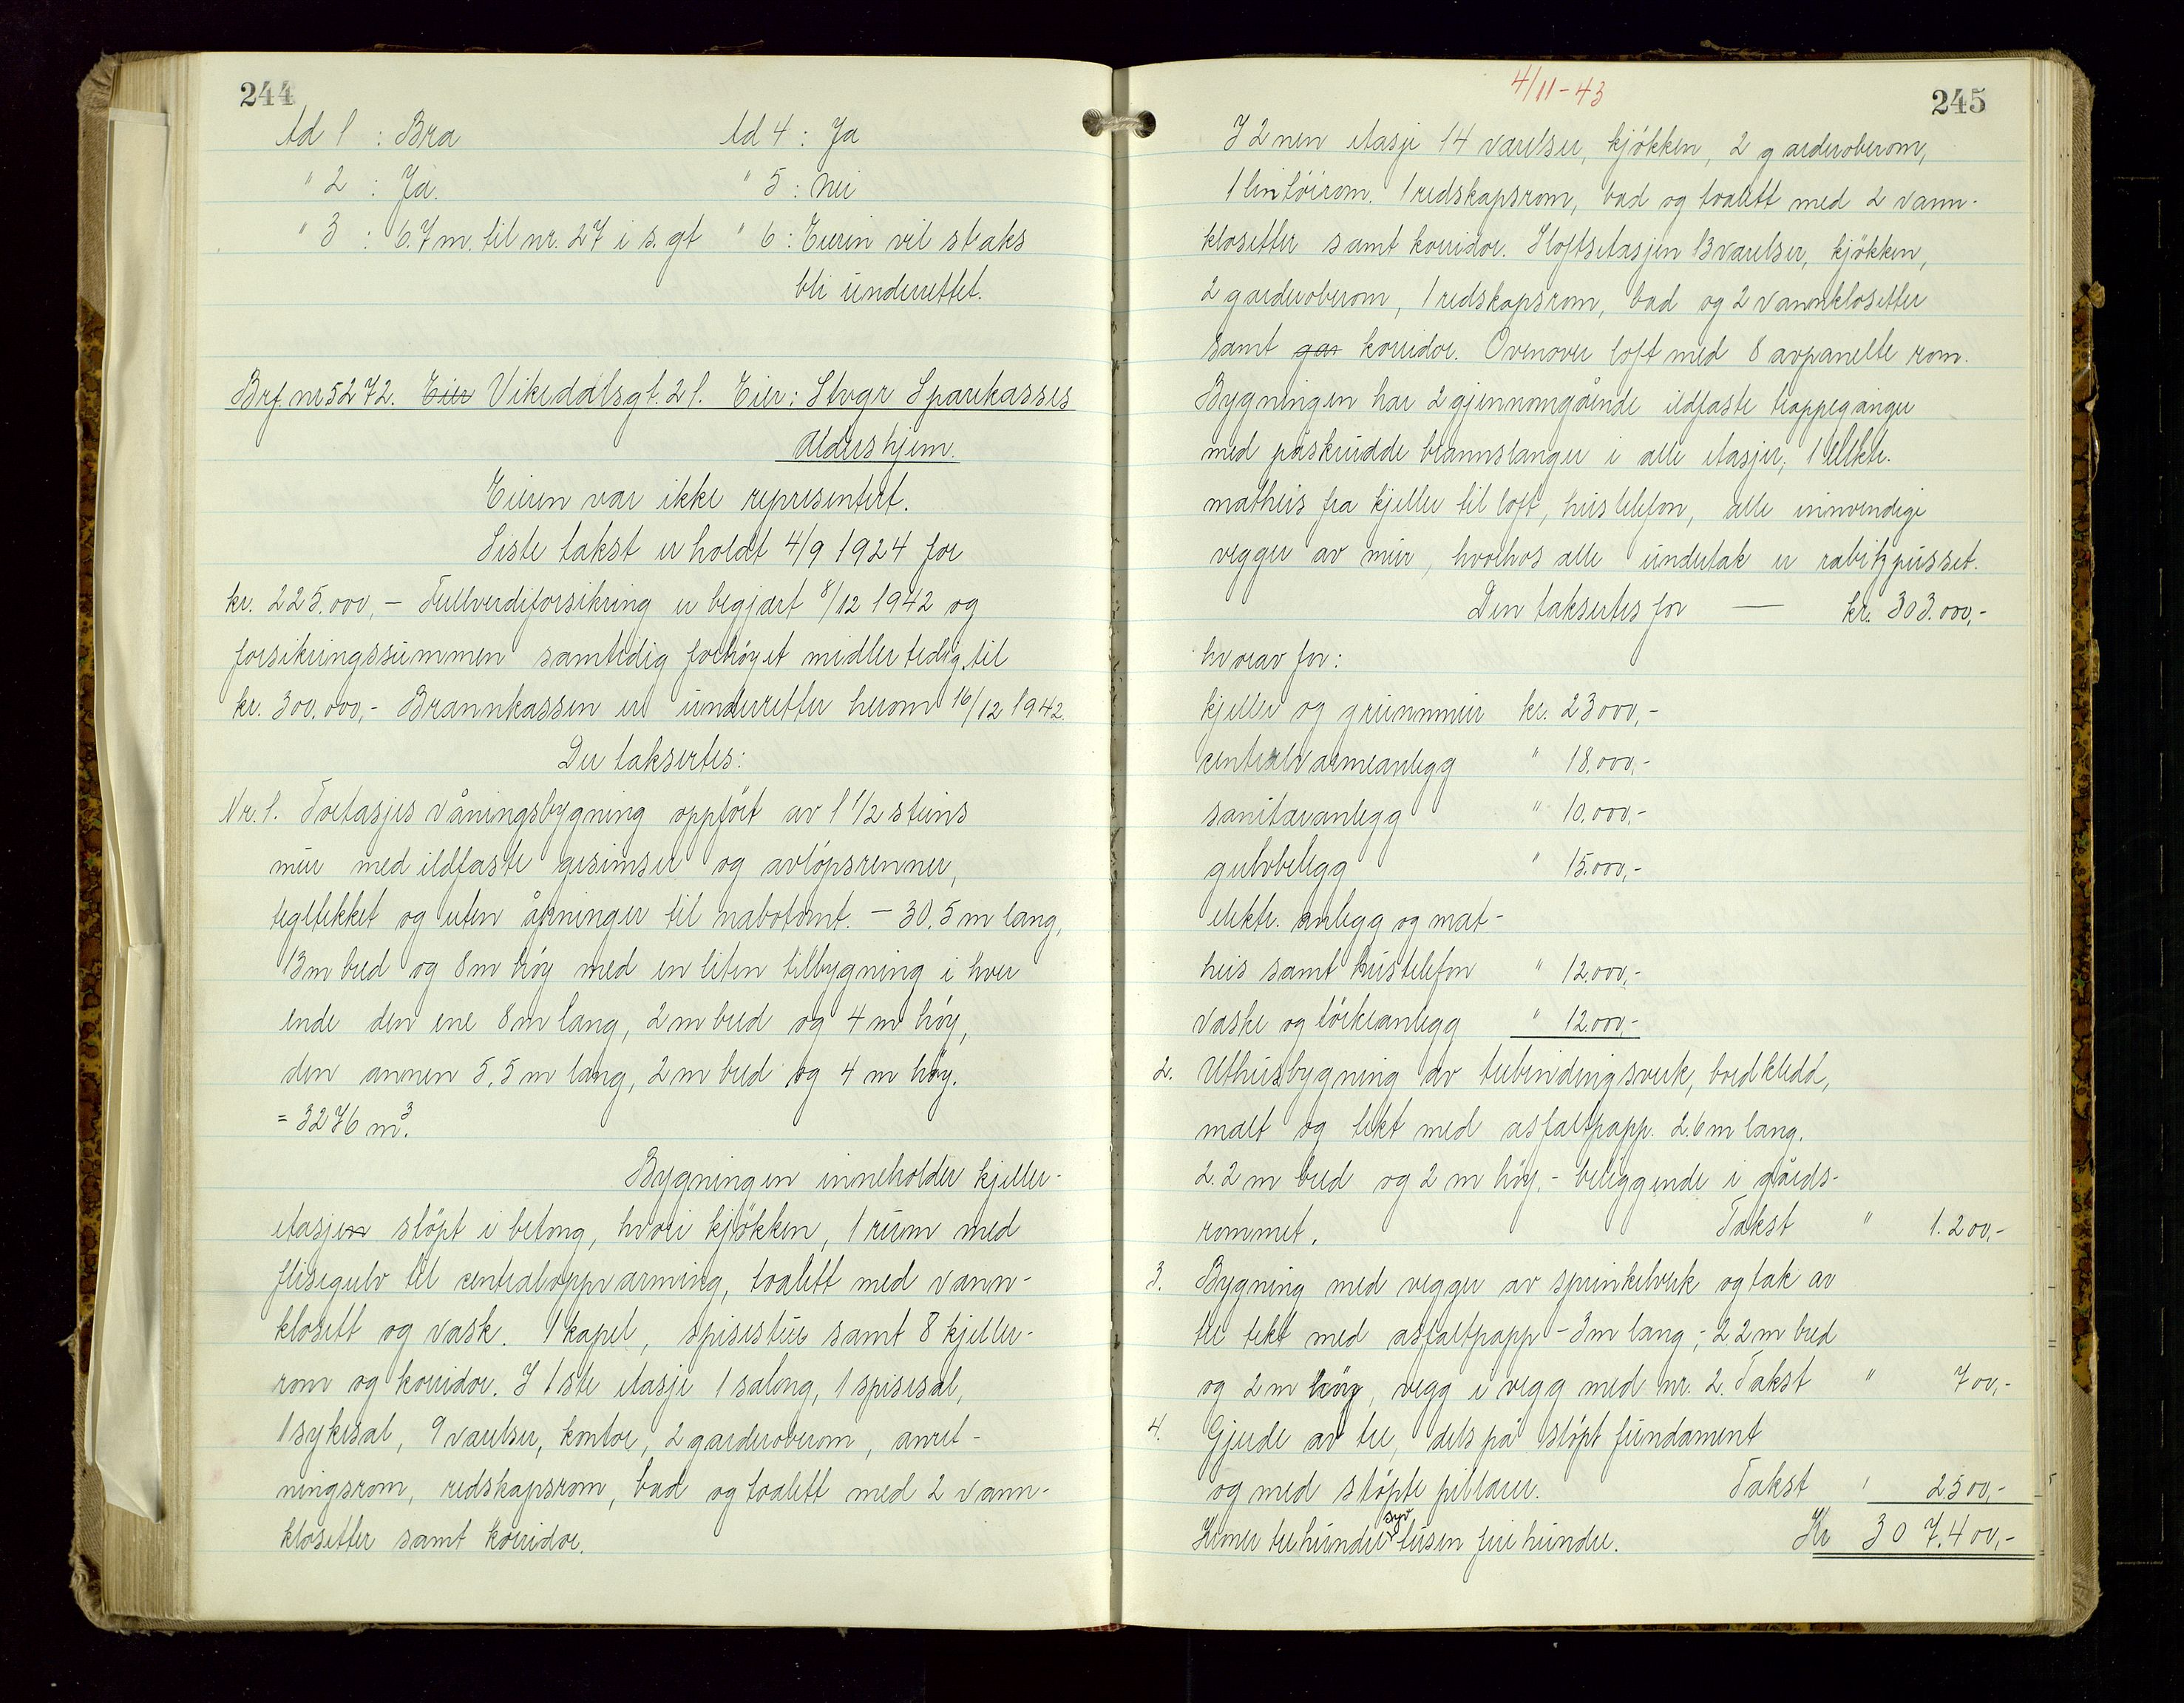 244
Ad 1 : Bra
Ad 4 : Ja
" 2 : Ja.
" 5 : Nei
" 3 : 6.7 m. til nr. 27 i s. gt
" 6 : Eieren vil straks
bli underrettet.
Brf. nr 5272. Eier Vikedalsgt. 21. Eier: Stvgr Sparekasses
Aldershjem.
Eieren var ikke representert.
Siste takst er holdt 4/9 1924 for
kr. 225.000,- Fullverdiforsikring er begjært 8/12 1942 og
forsikringssummen samtidig forhöyet midlertidig til
kr. 300.000,- Brannkassen er underretter herom 16/12 1942.
Der taksertes:
Nr. 1. Toetasjes våningsbygning oppfört av 1 1/2 steins
mur med ildfaste gesimser og avlöpsrenner,
tegltekket og uten åpninger til nabotomt. - 30.5 m lang,
13 m bred og 8 m höy med en liten tilbygning i hver
ende den ene 8 m lang, 2 m bred og 4 m höy,
den annen 5,5 m lang, 2 m bred og 4 m höy.
= 3276 m³.
Bygningen inneholder kjeller-
etasjen stöpt i betong, hvori kjökken, 1 rum med
flisegulv til centraloppvarming, toalett med vann-
klosett og vask. 1 kapel, spisestue samt 8 kjeller-
rom og korridor. I 1ste etasje 1 salong, 1 spisesal,
1 sykesal, 9 værelser, kontor, 2 garderoberom, anret-
ningsrom, redskapsrom, bad og toalett med 2 vann-
klosetter samt korridor.
4/11-43
245
I 2nen etasje 14 værelser, kjökken, 2 garderoberom,
1 lintöirom. 1 redskapsrom, bad og toalett med 2 vann-
klosetter samt korridor. I loftsetasjen 13 værelser, kjökken,
2 garderoberom, 1 redskapsrom, bad og 2 vannklosetter
samt gar korridor. Ovenover loft med 8 avpanelte rom.
Bygningen har 2 gjennomgående ildfaste trappeganger
med påskrudde brannslanger i alle etasjer, 1 elektr.
matheis fra kjeller til loft, hustelefon, alle innvendige
vegger av mur, hvorhos alle undertak er rabitzpusset.
Den taksertes for — kr. 303.000,-
hvorav for:
kjeller og grunnmur kr. 23000,-
centralvarmeanlegg " 18.000,-
sanitæranlegg " 10.000,-
gulvbelegg " 15.000,-
elektr. anlegg og mat-
heis samt hustelefon " 12000,-
vaske og törkeanlegg " 12.000,-
2. Uthusbygning av trebindingsverk, bordkledd,
malt og tekt med asfaltpapp. 2.6 m lang.
2.2 m bred og 2 m höy, - beliggende i gårds-
rommet. Takst " 1.200,-
3. Bygning med vegger av sprinkelverk og tak av
tre tekt med asfaltpapp - 3 m lang, - 2.2 m bred
og 2 m höy, vegg i vegg med nr. 2. Takst " 700,-
4. Gjerde av tre, dels på stöpt fundament
og med stöpte pillarer. Takst " 2500,-
Kroner tre hundre syv tusen fire hundre. Kr 307.400,-